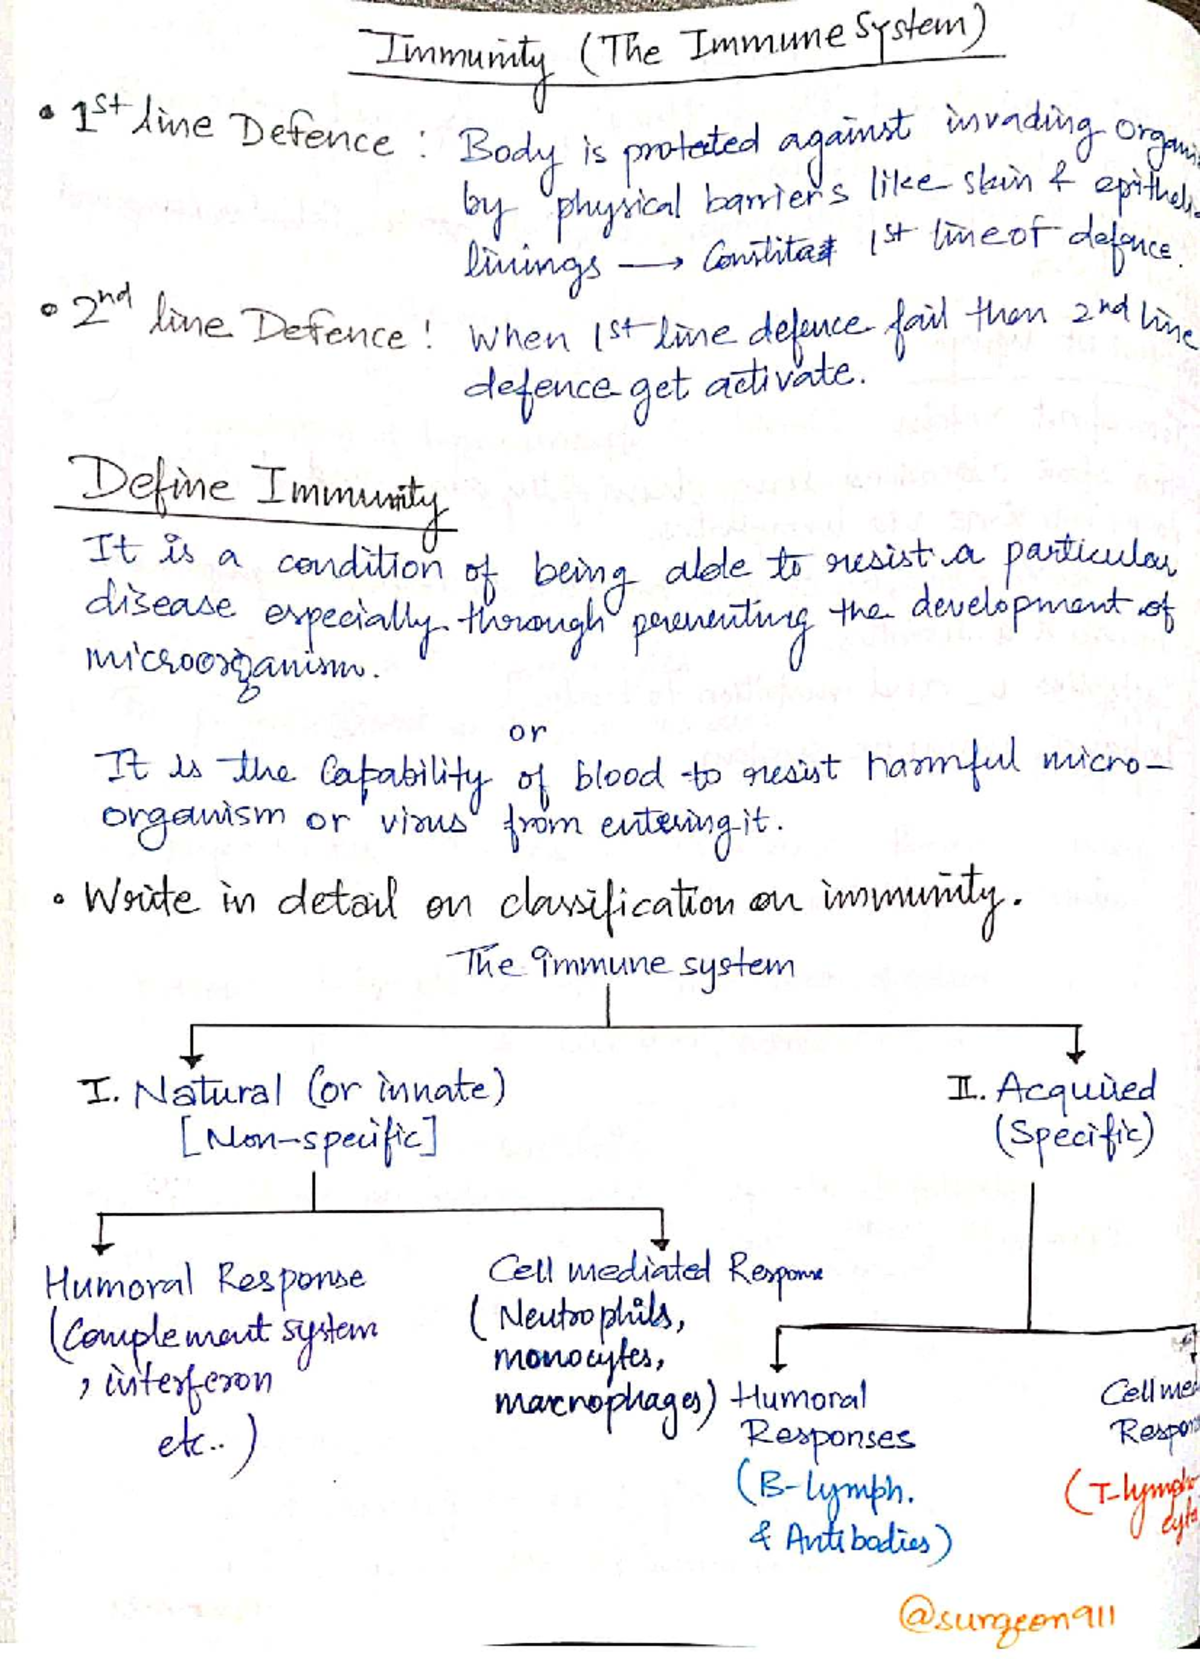 Immunity (The Immune System)
• 1st line Defence : Body is protected against invading organi
by physical barriers like skin & epitheli
linings → Constitat 1st line of defence.
• 2nd line Defence : When 1st line defence fail then 2nd line
defence get activate.
Define Immunity
It is a condition of being able to resist a particular
disease especially through preventing the development of
microorganism.
or
It is the Capability of blood to resist harmful micro-
organism or virus from entering it.
• Write in detail on classification on immunity.
The immune system
I. Natural (or innate)
[Non-specific]
II. Acquired
(Specific)
Humoral Response
(Complement system
, interferon
etc..)
Cell mediated Response
(Neutrophils,
monocytes,
macrophages)
Humoral
Responses
(B-lymph.
& Antibodies)
Cell me
Respon
(T-lympho
cyte
@surgeon911